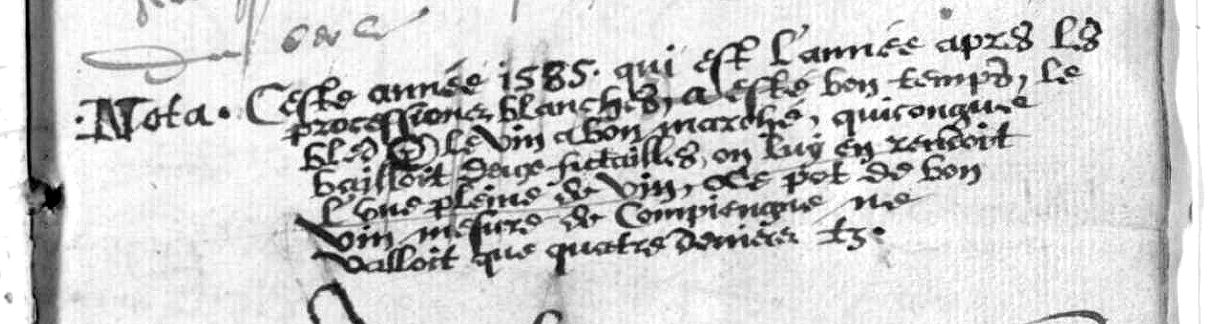 ·Nota· Ceste année 1585. qui est l'année apres les
processions blanches, a esté bon temps, le
bled & le vin a bon marché, quicongue
bailloit deux futailles, on luy en rendoit
l'une pleine de vin, & le pot de bon
vin mesure de Compiengne ne
valloit que quatre deniers tz.